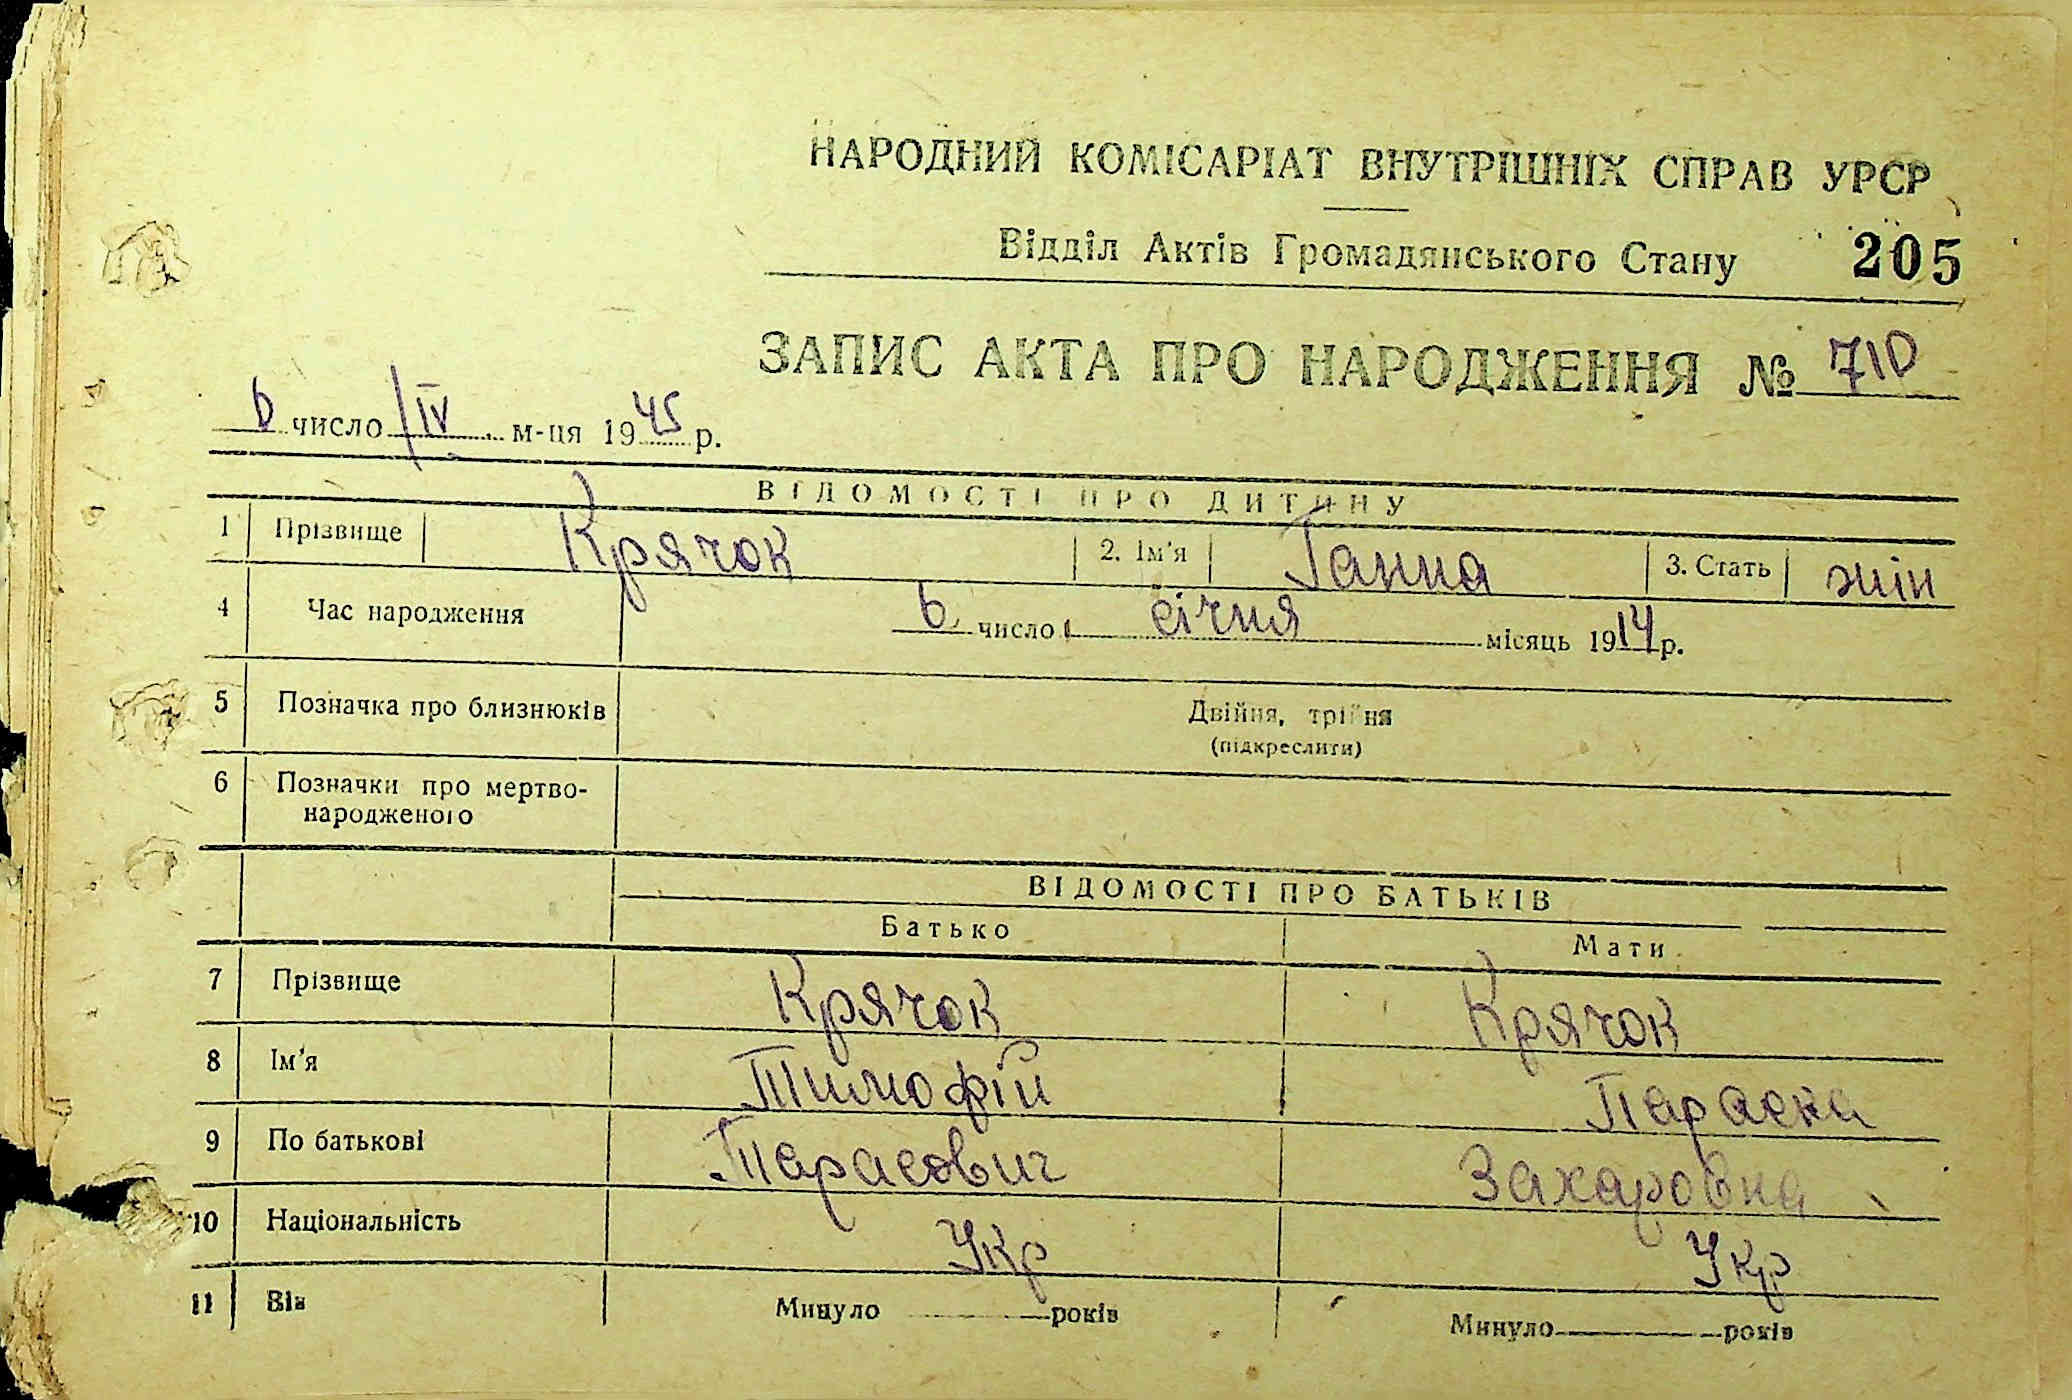 НАРОДНИЙ КОМІСАРІАТ ВНУТРІШНІХ СПРАВ УРСР
Відділ Актів Громадянського Стану 205
ЗАПИС АКТА ПРО НАРОДЖЕННЯ № 710
6 число IV м-ця 1945 р.
ВІДОМОСТІ ПРО ДИТИНУ
1 Прізвище Крячок 2. Ім'я Ганна 3. Стать жін
4 Час народження 6 число січня місяць 1914 р.
5 Позначка про близнюків Двійня, трійня
(підкреслити)
6 Позначки про мертво-
народженого
ВІДОМОСТІ ПРО БАТЬКІВ
Батько Мати
7 Прізвище Крячок Крячок
8 Ім'я Тимофій Параска
9 По батькові Тарасович Захаровна
10 Національність Укр Укр
11 Вік Минуло років Минуло років